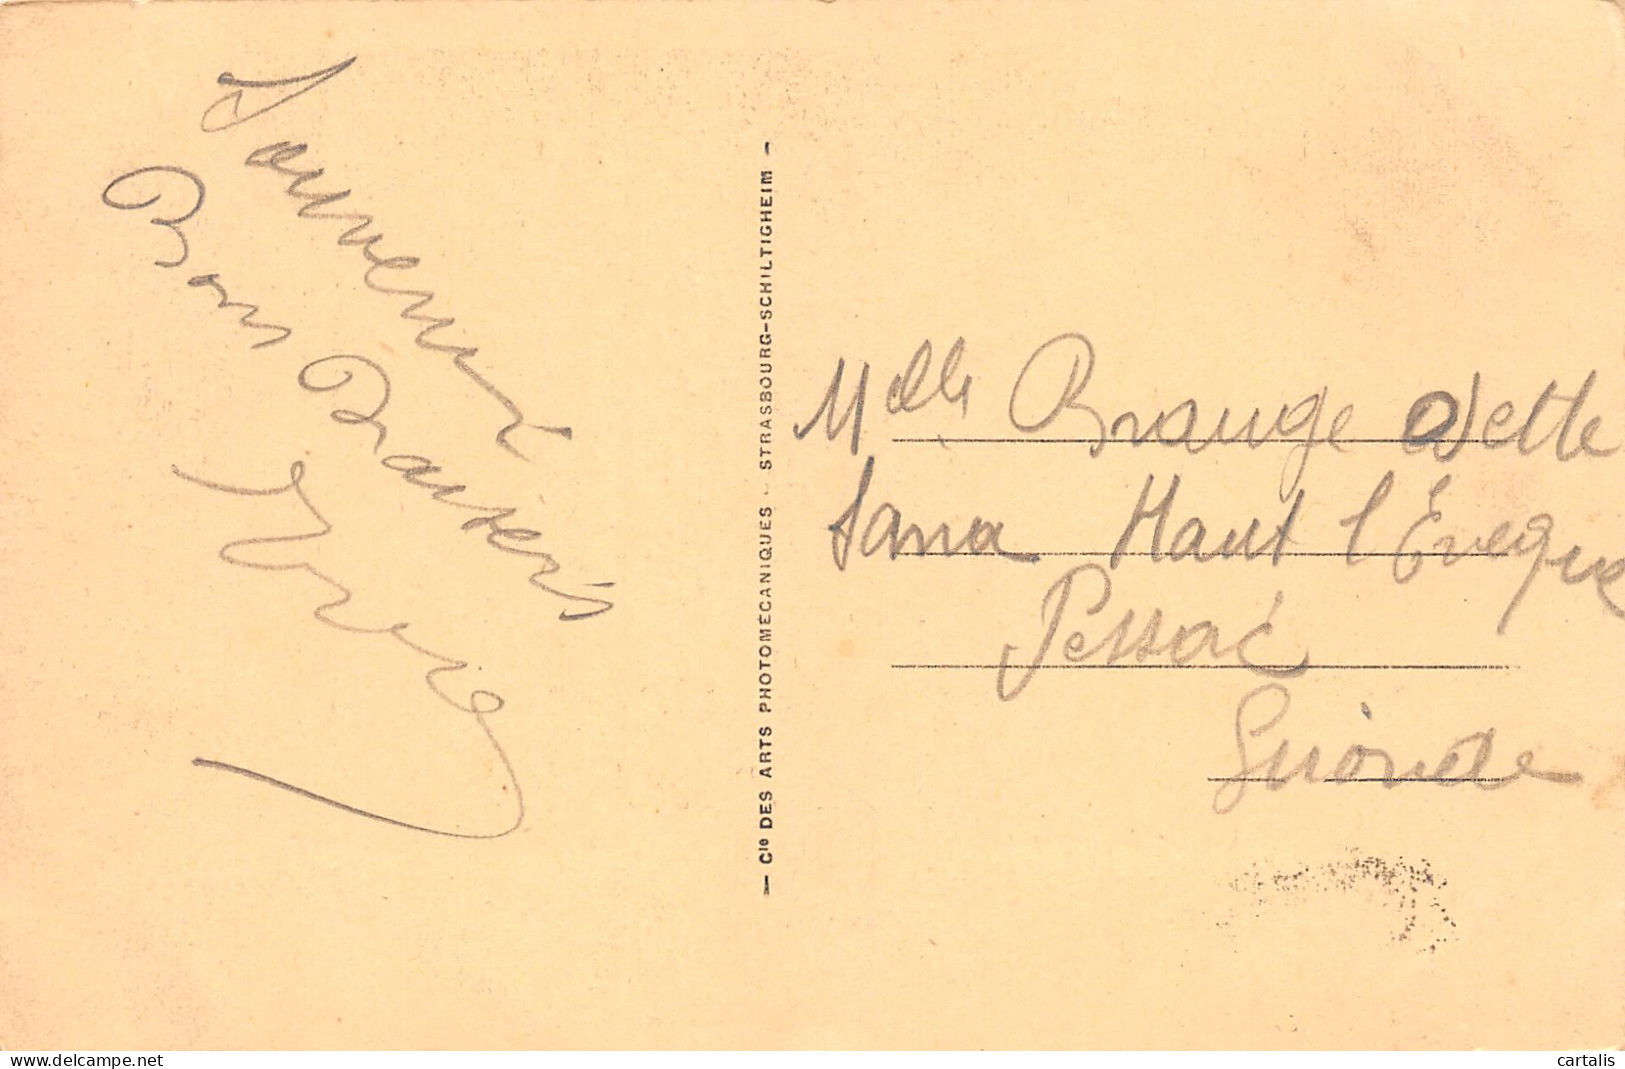 Souvenir
Bons Baisers
— Cie DES ARTS PHOTOMÉCANIQUES - STRASBOURG-SCHILTIGHEIM —
Mdlle Brange Odette
Sana Haut l'Évêque
Pessac
Gironde
www.delcampe.net
cartalis